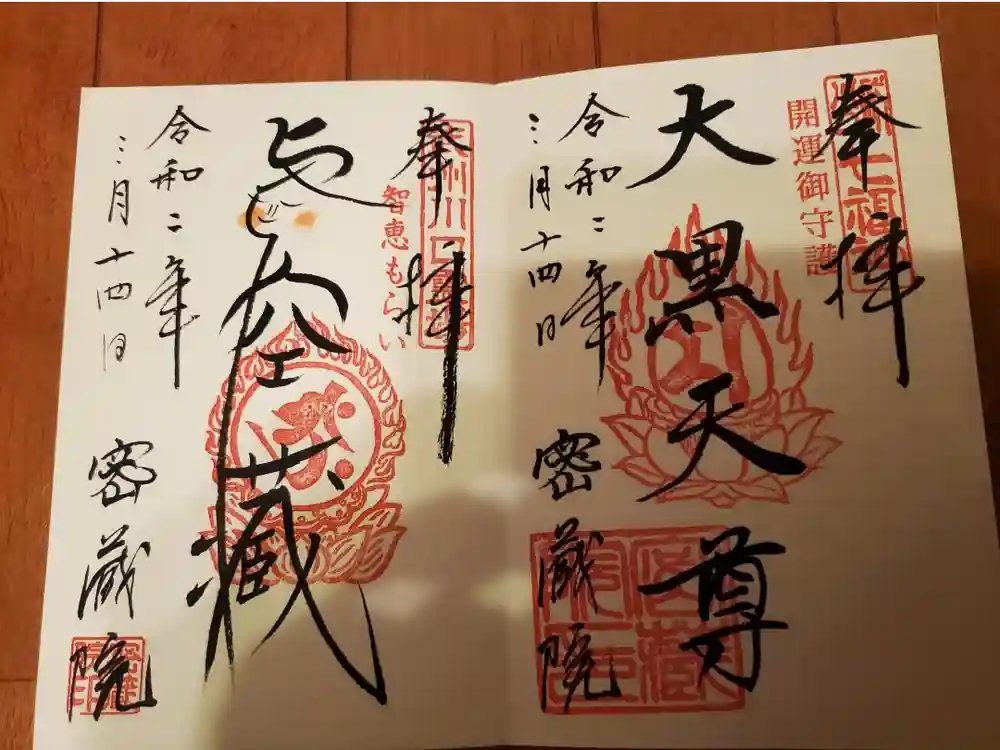 奉拝
開運御守護
大黒天尊
令和二年
三月十四日
密蔵院
奉拝
智恵もらい
虚空蔵
令和二年
三月十四日
密蔵院